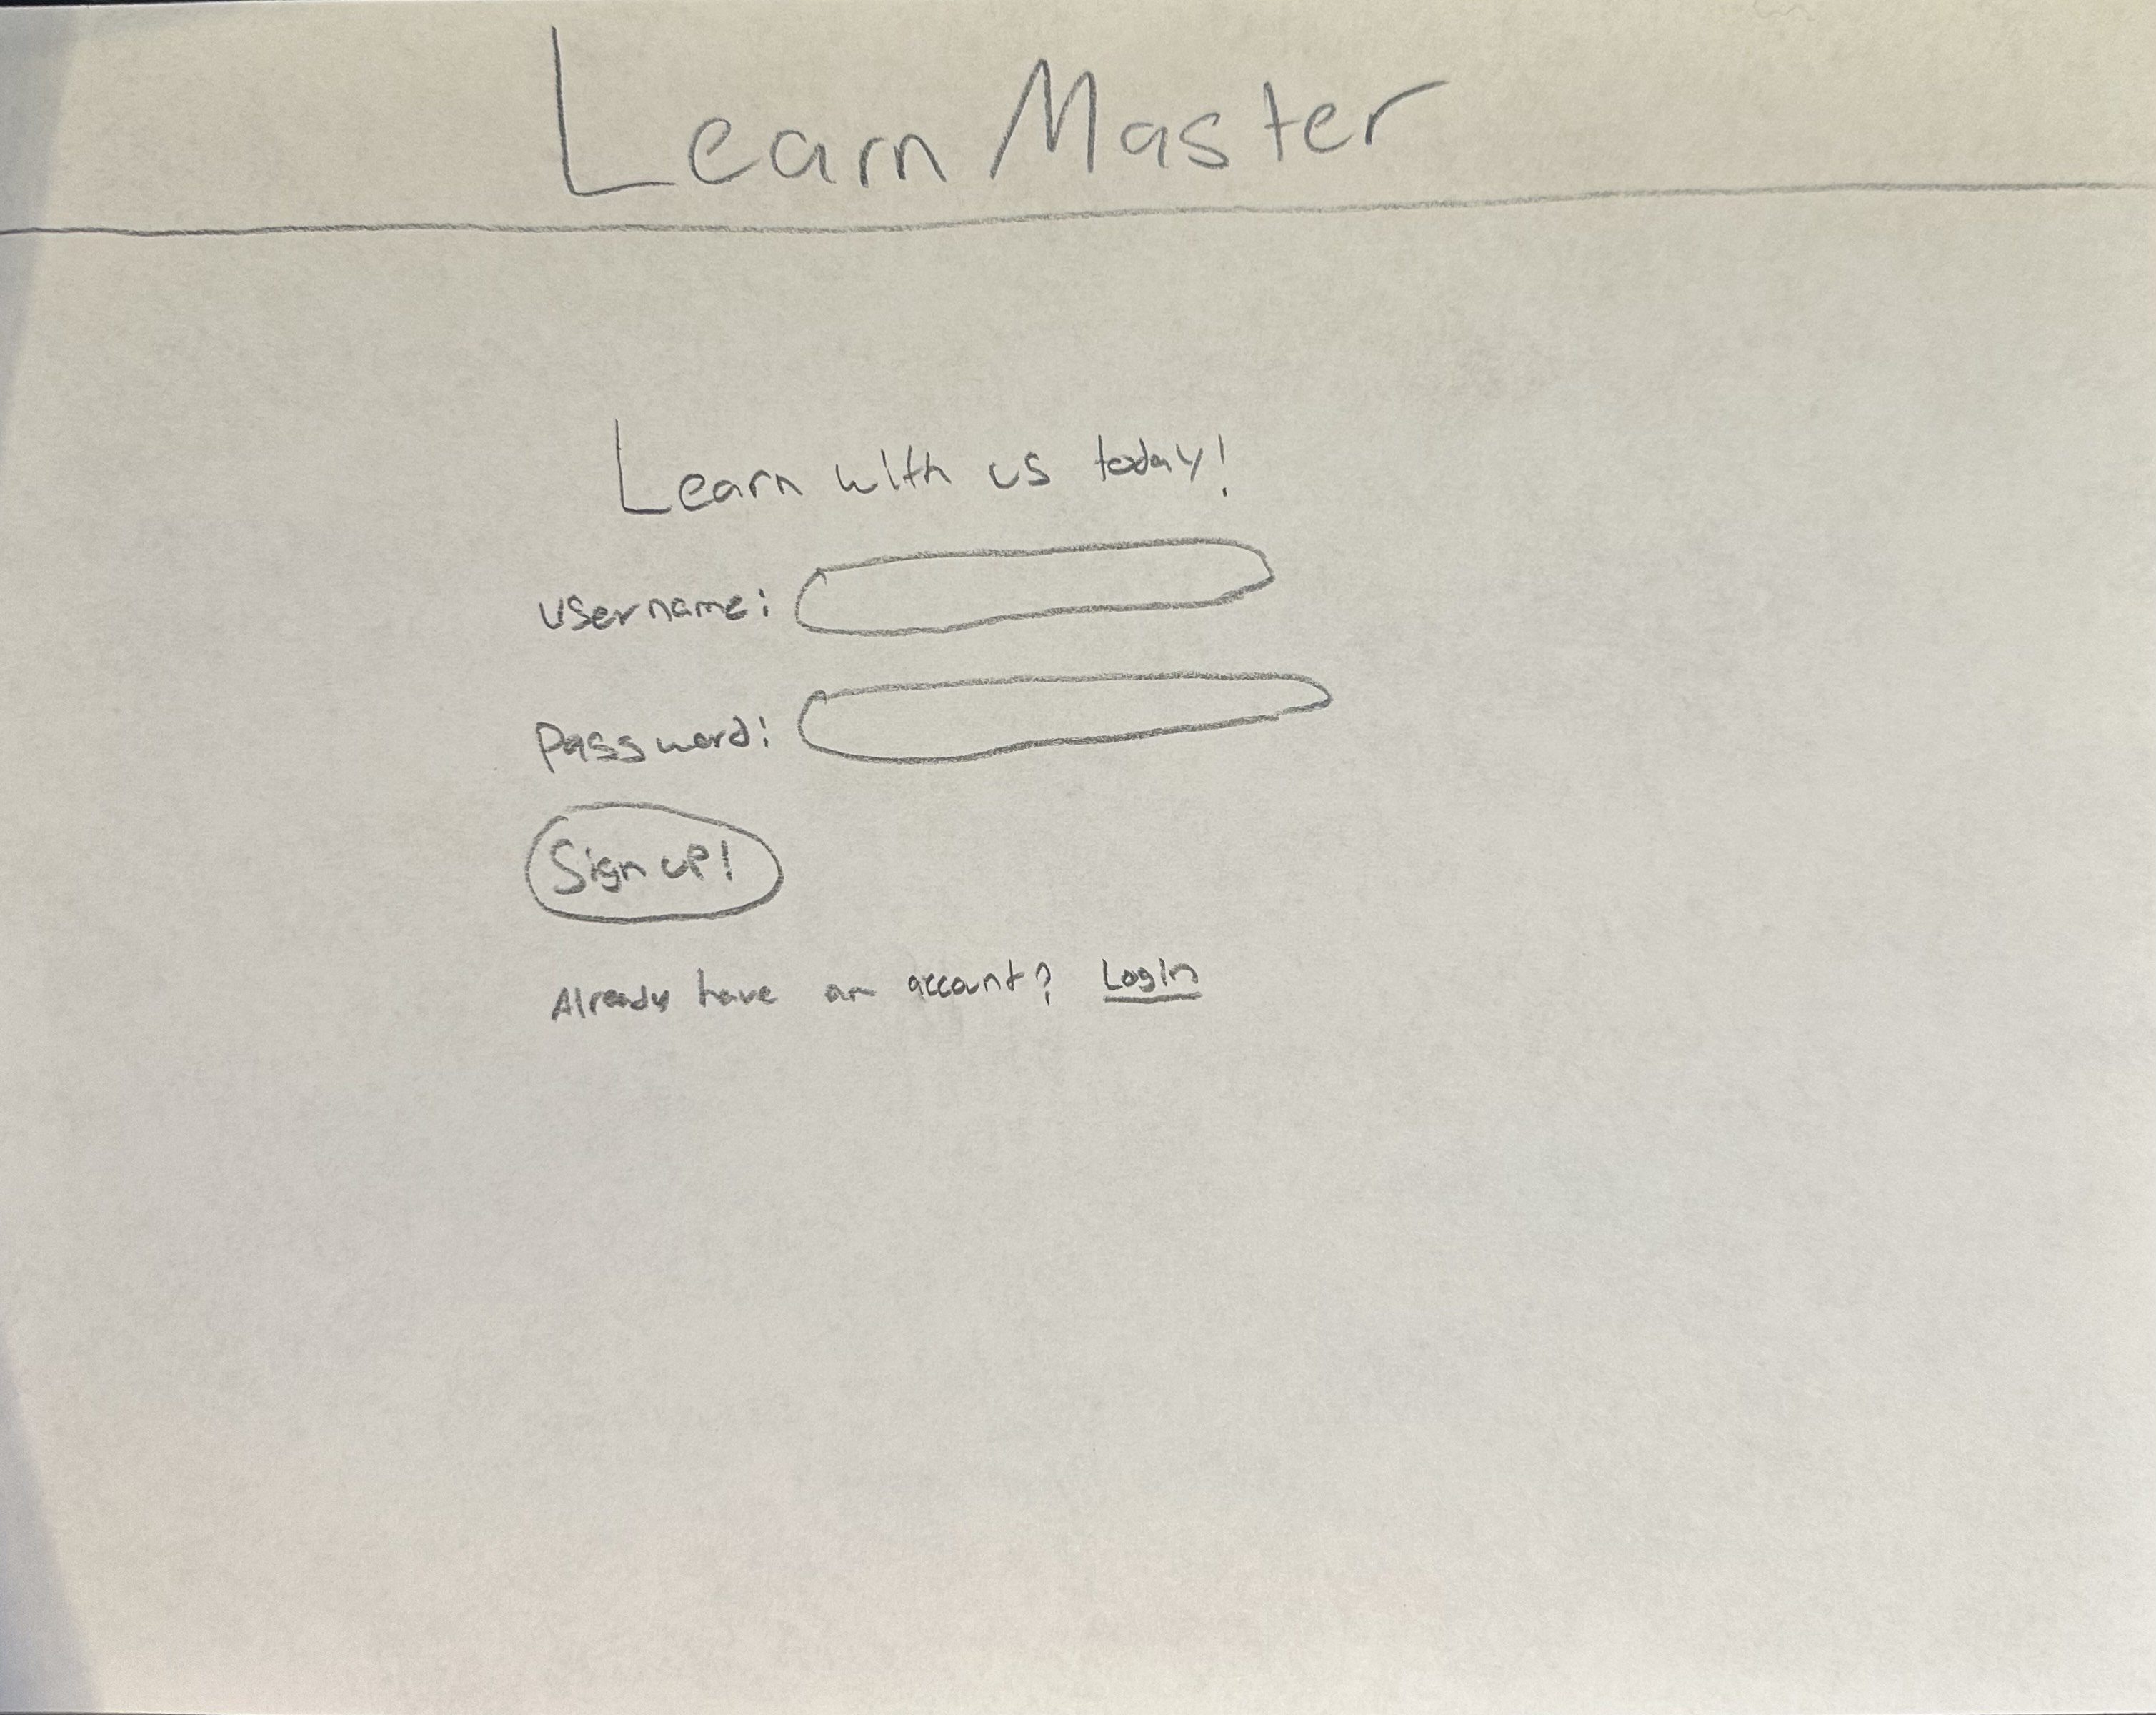 Learn Master
Learn with us today!
username:
Password:
Sign up!
Already have an account? Login